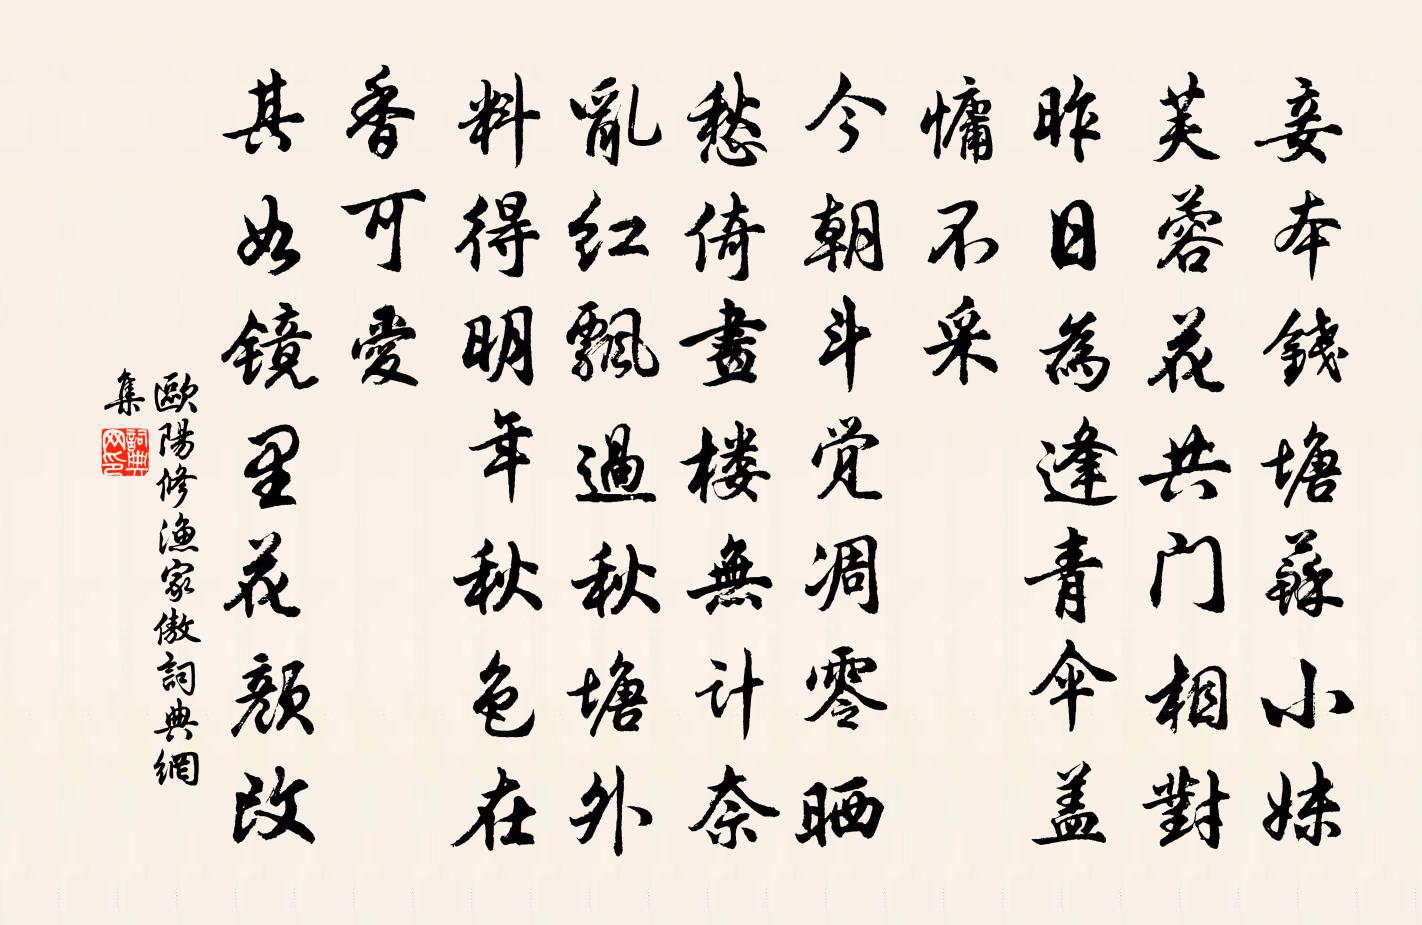 妾本錢塘蘇小妹
芙蓉花共门相對
昨日為逢青伞盖
慵不采
今朝斗觉凋零晒
愁倚畫楼無计奈
亂红飄過秋塘外
料得明年秋色在
香可愛
其如镜里花颜改
歐陽修漁家傲詞典網
集
詞典
网印